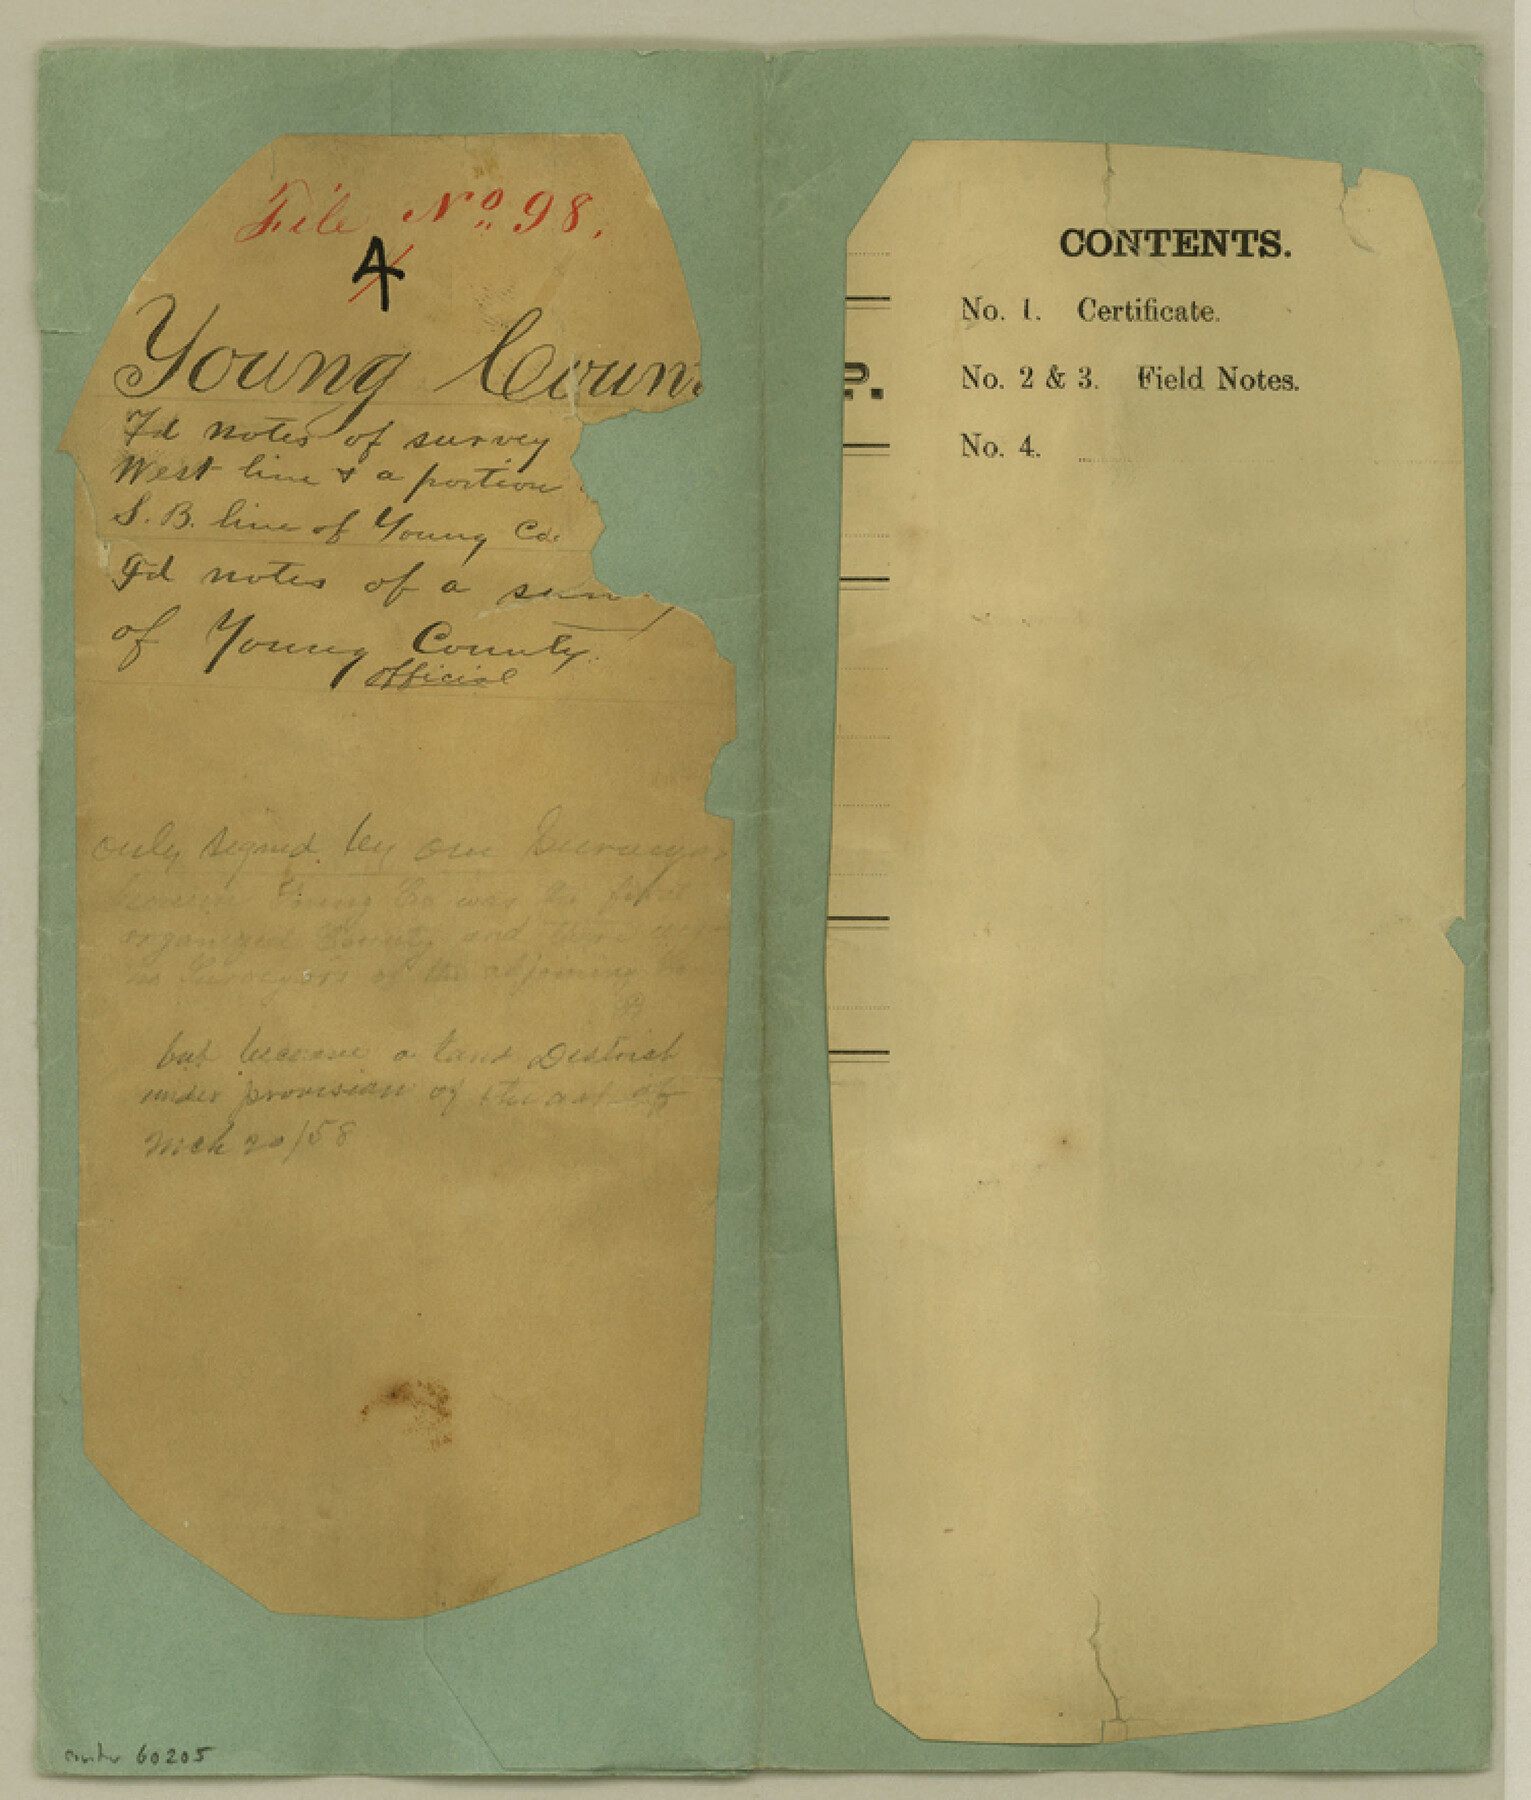 File No 98.
4
Young Coun
Fd notes of survey
West line & a portion
S. B. line of Young Co.
Fd notes of a
of Young County.
official
only signed by one Surveyor
because Young Co was the first
organized County and there were
no Surveyors of the adjoining
but became a Land District
under provision of the act of
Mch 20/58
counter 60205
CONTENTS.
No. 1. Certificate.
No. 2 & 3. Field Notes.
No. 4.